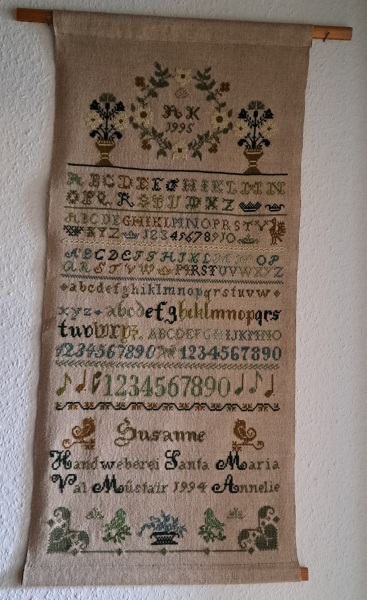 AK
1995
ABCDEFGHIKLMN
OPQRSTUVXZ
ABCDEFGHIKLMNOPRSTV
XYZ 1234567890
ABCDEFGHIKLMNOP
QRSTUVW PQRSTUVWXYZ
abcdefghiklmnopqrstuvw
xyz abcdefghiklmnopqrs
tuvwxyz ABCDEFGHIJKMNO
1234567890 1234567890
1234567890
Susanne
Handweberei Santa Maria
Val Müstair 1994 Annelie